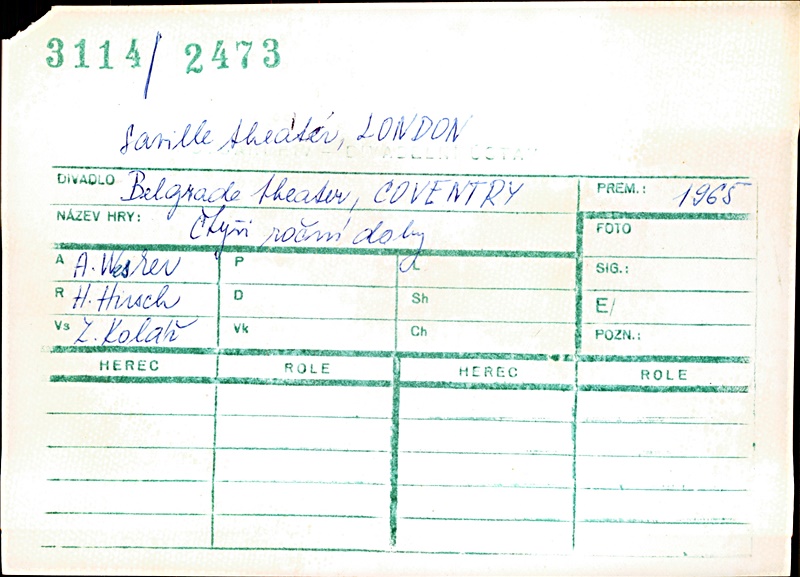 3114/ 2473
Saville theatér, LONDON
DIVADLO Belgrade theater, COVENTRY PREM.: 1965
NÁZEV HRY: Čtyři roční doby FOTO
A A. Wesker P L SIG.:
R H. Hirsch D Sh E/
Vs Z. Kolář Vk Ch POZN.:
HEREC ROLE HEREC ROLE